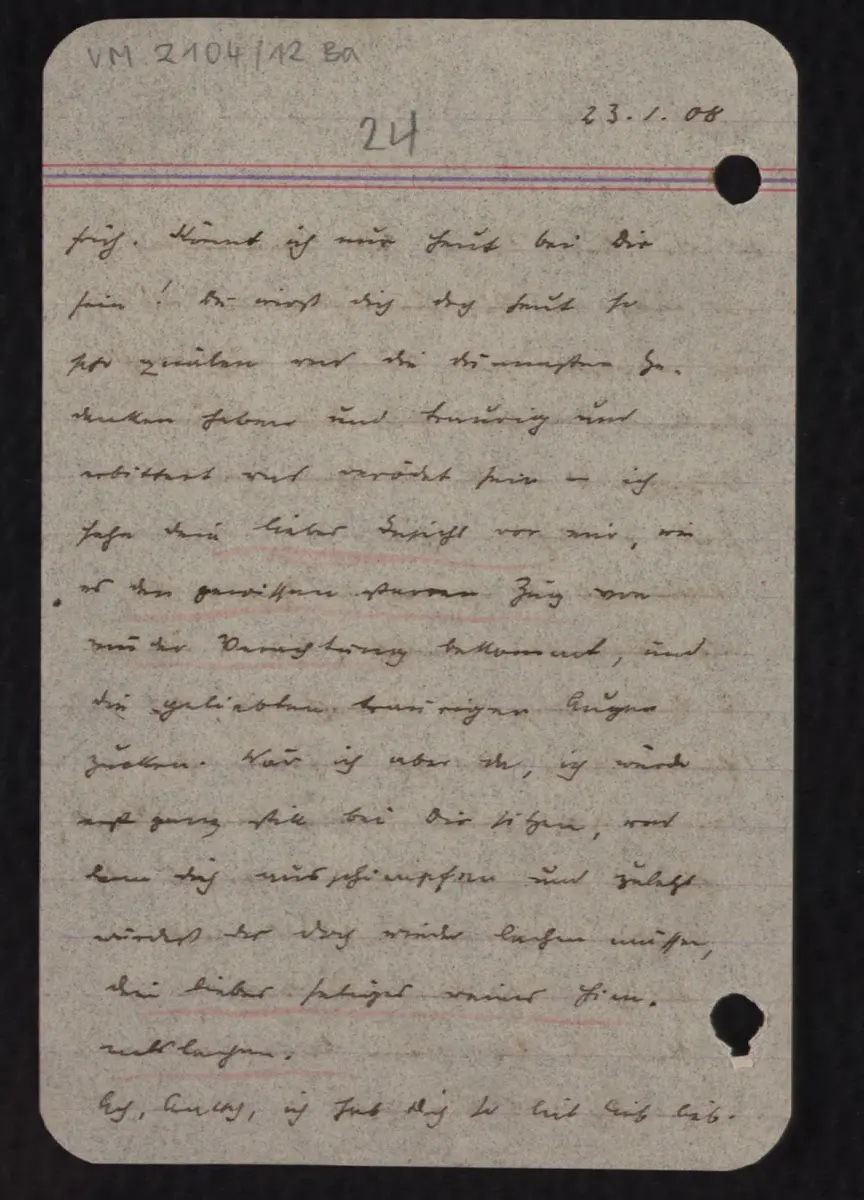 VM 2104/12 Ba
24
23.1.08
früh. Könnt ich nur heut bei Dir
sein! Du wirst dich doch heut so
sehr quälen und die dümmsten Ge-
danken haben und traurig und
erbittert und verödet sein – ich
sehe dein liebes Gesicht vor mir, wie
es den gewissen starren Zug von
müder Verachtung bekommt, und
die geliebten traurigen Augen
zucken. Wär ich aber da, ich würde
erst ganz still bei Dir sitzen, und
dann dich ausschimpfen und zuletzt
würdest du doch wieder lachen müssen,
dein liebes seliges reines Him-
melslachen.
Ach, ich hab Dich so lieb lieb lieb.